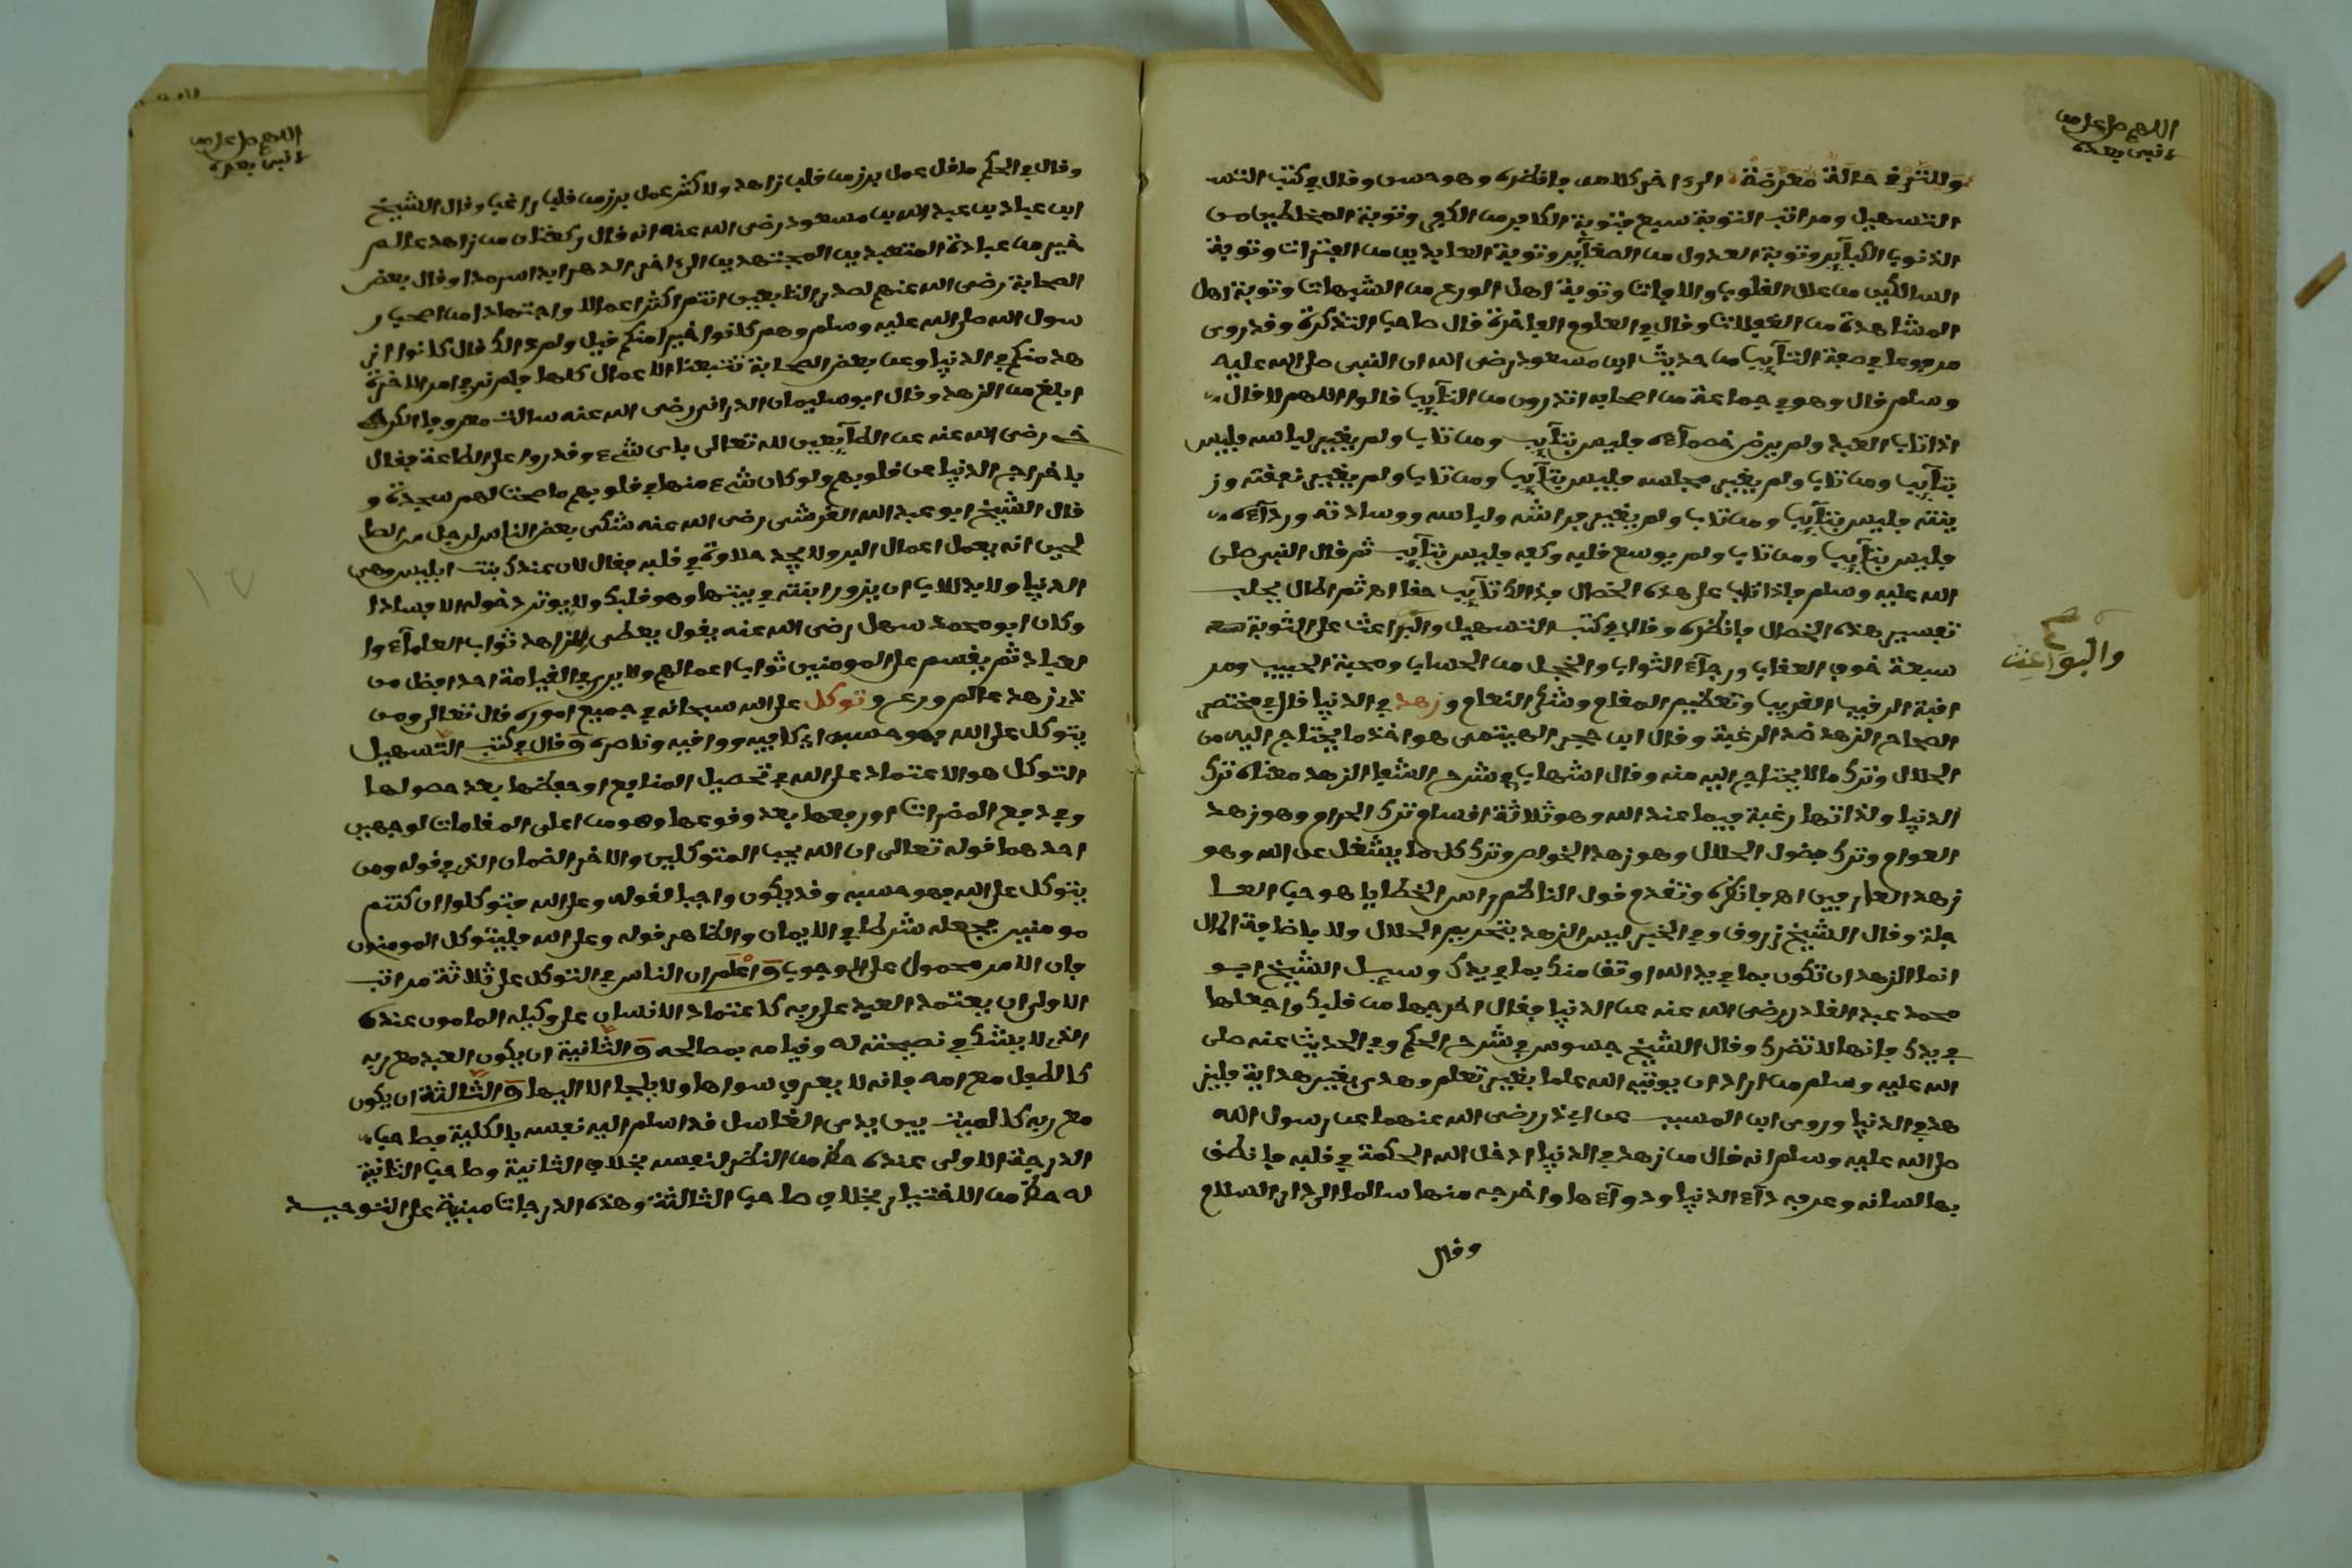 اللهم صل على من
لا نبي بعده
وللترقي حالة معرضة الى ءاخر كلامه فانظره وهو حسن وقال في كتب التسـ
التسهيل ومراتب التوبة سبع فتوبة الكافر من الكفر وتوبة المخلطين من
الذنوب الكبآئر وتوبة العدول من الصغآئر وتوبة العابدين من الفترات وتوبة
السالكين من علل القلوب والافات وتوبة اهل الورع من الشبهات وتوبة اهل
المشاهدة من الغفلات وقال في العلوم الفاخرة قال صاحب التذكرة وقد روى
مرفوعا في صفة التآئب من حديث ابن مسعود رضى الله ان النبى صلى الله عليه
وسلم قال وهو في جماعة من اصحابه اتدرون من التآئب قالوا اللهم لا قال
اذا تاب العبد ولم يرض خصمآءه فليس بتآئب ومن تاب ولم يغير لباسه فليس
بتآئب ومن تاب ولم يغير مجلسه فليس بتآئب ومن تاب ولم يغير نفقته وز
ينته فليس بتآئب ومن تاب ولم يغير فراشه ولباسه ووسادته وردآءه
فليس بتآئب ومن تاب ولم يوسع قلبه وكفه فليس بتآئب ثم قال النبى صلى
الله عليه وسلم فاذا تاب على هذه الخصال فذالك تآئب حقا اهـ ثم اطال بجلب
تفسير هذه الخصال فانظره وقال في كتب التسهيل والبواعث على التوبة
سبعة خوف العقاب ورجآء الثواب والخجل من الحساب ومحبة الحبيب ومر
اقبة الرقيب القريب وتعظيم المقام وشكر النعام وزهد في الدنيا قال في مختصر
الصحاح الزهد ضد الرغبة وقال ابن حجر الهيتمى هو اخذ ما يحتاج اليه من
الحلال وترك ما لا يحتاج اليه منه وقال الشهاب في شرح الشفا الزهد معناه ترك
الدنيا ولذاتها رغبة فيما عند الله وهو ثلاثة اقسام ترك الحرام وهو زهد
العوام وترك فضول الحلال وهو زهد الخواص وترك كل ما يشغل عن الله وهو
زهد العارفين اهـ فانظره وتقدم قول الناظم راس الخطايا هو حب العا
جلة وقال الشيخ زروق وفي الخبر ليس الزهد بتحريم الحلال ولا باضاعة المال
انما الزهد ان تكون بما في يد الله اوثق منك بما في يدك وسيل الشيخ ابو
محمد عبد القادر رضى الله عنه عن الدنيا فقال اخرجها من قلبك واجعلها
في يدك فانها لا تضرك وقال الشيخ جسوس في شرح الحكم وفي الحديث عنه صلى
الله عليه وسلم من اراد ان يوتيه الله علما بغير تعلم وهدى بغير هداية فليز
هد في الدنيا وروى ابن المسيب عن ابى ذر رضى الله عنهما عن رسول الله
صلى الله عليه وسلم انه قال من زهد في الدنيا ادخل الله الحكمة في قلبه فانطق
بها لسانه وعرفه دآء الدنيا ودوآءها واخرجه منها سالما الى دار السلام
وقال
والبواعث
اللهم صل على من
لا نبي بعده
وقال في الحكم ما قل عمل برز من قلب زاهد ولا كثر عمل برز من قلب راغب وقال الشيخ
ابن عباد بن عبد الله بن مسعود رضى الله عنه انه قال ركعتان من زاهد عالم
خير من عبادة المتعبدين المجتهدين الى ءاخر الدهر ابدا سرمدا وقال بعض
الصحابة رضى الله عنهم لصدر التابعين انتم اكثر اعمالا واجتهادا من اصحاب ر
سول الله صلى الله عليه وسلم وهم كانوا خيرا منكم قيل ولم ذالك قال كانوا از
هد منكم في الدنيا وعن بعض الصحابة تتبعنا الاعمال كلها فلم نر في امر الاخرة
ابلغ من الزهد وقال ابو سليمان الدرانى رضى الله عنه سالت معروفا الكر
خى رضى الله عنه عن الطآئعين لله تعالى باى شىء قدروا على الطاعة فقال
باخراج الدنيا من قلوبهم ولو كان شىء منها في قلوبهم ما صحت لهم سجدة و
قال الشيخ ابو عبد الله القرشى رضى الله عنه شكى بعض الناس لرجل من الصا
لحين انه يعمل اعمال البر ولا يجد حلاوة في قلبه فقال لان عندك بنت ابليس وهى
الدنيا ولا بد للاب ان يزور ابنته في بيتها وهو قلبك ولا يوثر دخوله الا فسادا
وكان ابو محمد سهل رضى الله عنه يقول يعطى الزاهد ثواب العلمآء وا
لعباد ثم يقسم على المومنين ثواب اعمالهم ولا يرى في القيامة احد افضل من
ذى زهد عالم ورع وتوكل على الله سبحانه في جميع اموره قال تعالى ومن
يتوكل على الله فهو حسبه اى كافيه وواقيه وناصره وقال في كتب التسهيل
التوكل هو الاعتماد على الله في تحصيل المنافع او حفظها بعد حصولها
وفي دفع المضرات او رفعها بعد وقوعها وهو من اعلى المقامات لوجهين
احدهما قوله تعالى ان الله يحب المتوكلين والاخر الضمان الذى في قوله ومن
يتوكل على الله فهو حسبه وقد يكون واجبا لقوله وعلى الله فتوكلوا ان كنتم
مومنين فجعله شرطا في الايمان والظاهر قوله وعلى الله فليتوكل المومنون
فان الامر محمول على الوجوب واعلم ان الناس في التوكل على ثلاثة مراتب
الاولى ان يعتمد العبد على ربه كاعتماد الانسان على وكيله المامون عنده
الذى لا يشك في نصيحته له وقيامه بمصالحه والثانية ان يكون العبد مع ربه
كالطفل مع امه فانه لا يعرف سواها ولا يلجا الا اليها والثالثة ان يكون
مع ربه كالميت بين يدى الغاسل قد اسلم اليه نفسه بالكلية فصاحب
الدرجة الاولى عنده حظ من النظر لنفسه بخلاف الثانية وصاحب الثانية
له حظ من الاختيار بخلاف صاحب الثالثة وهذه الدرجات مبنية على التوحيد